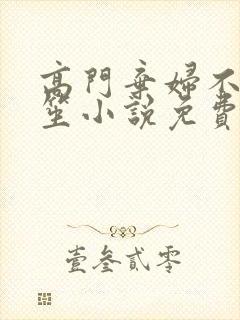 高門棄婦不
笙小說免費
壹叁貳零